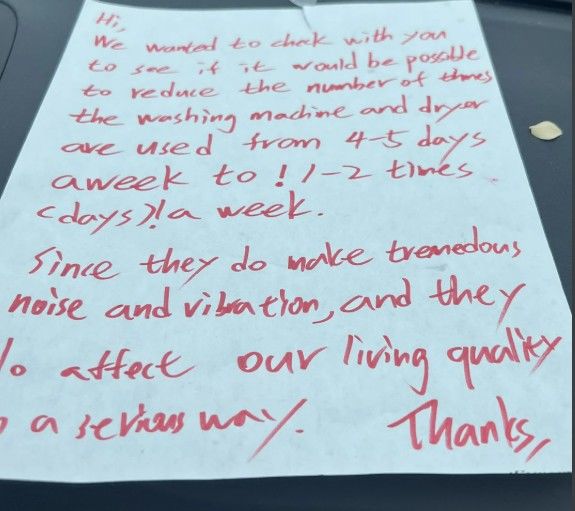 Hi,
We wanted to check with you
to see if it would be possible
to reduce the number of times
the washing machine and dryer
are used from 4-5 days
aweek to ! 1-2 times
(days)! a week.
Since they do make tremedous
noise and vibration, and they
do affect our living quality
a serious way.
Thanks,